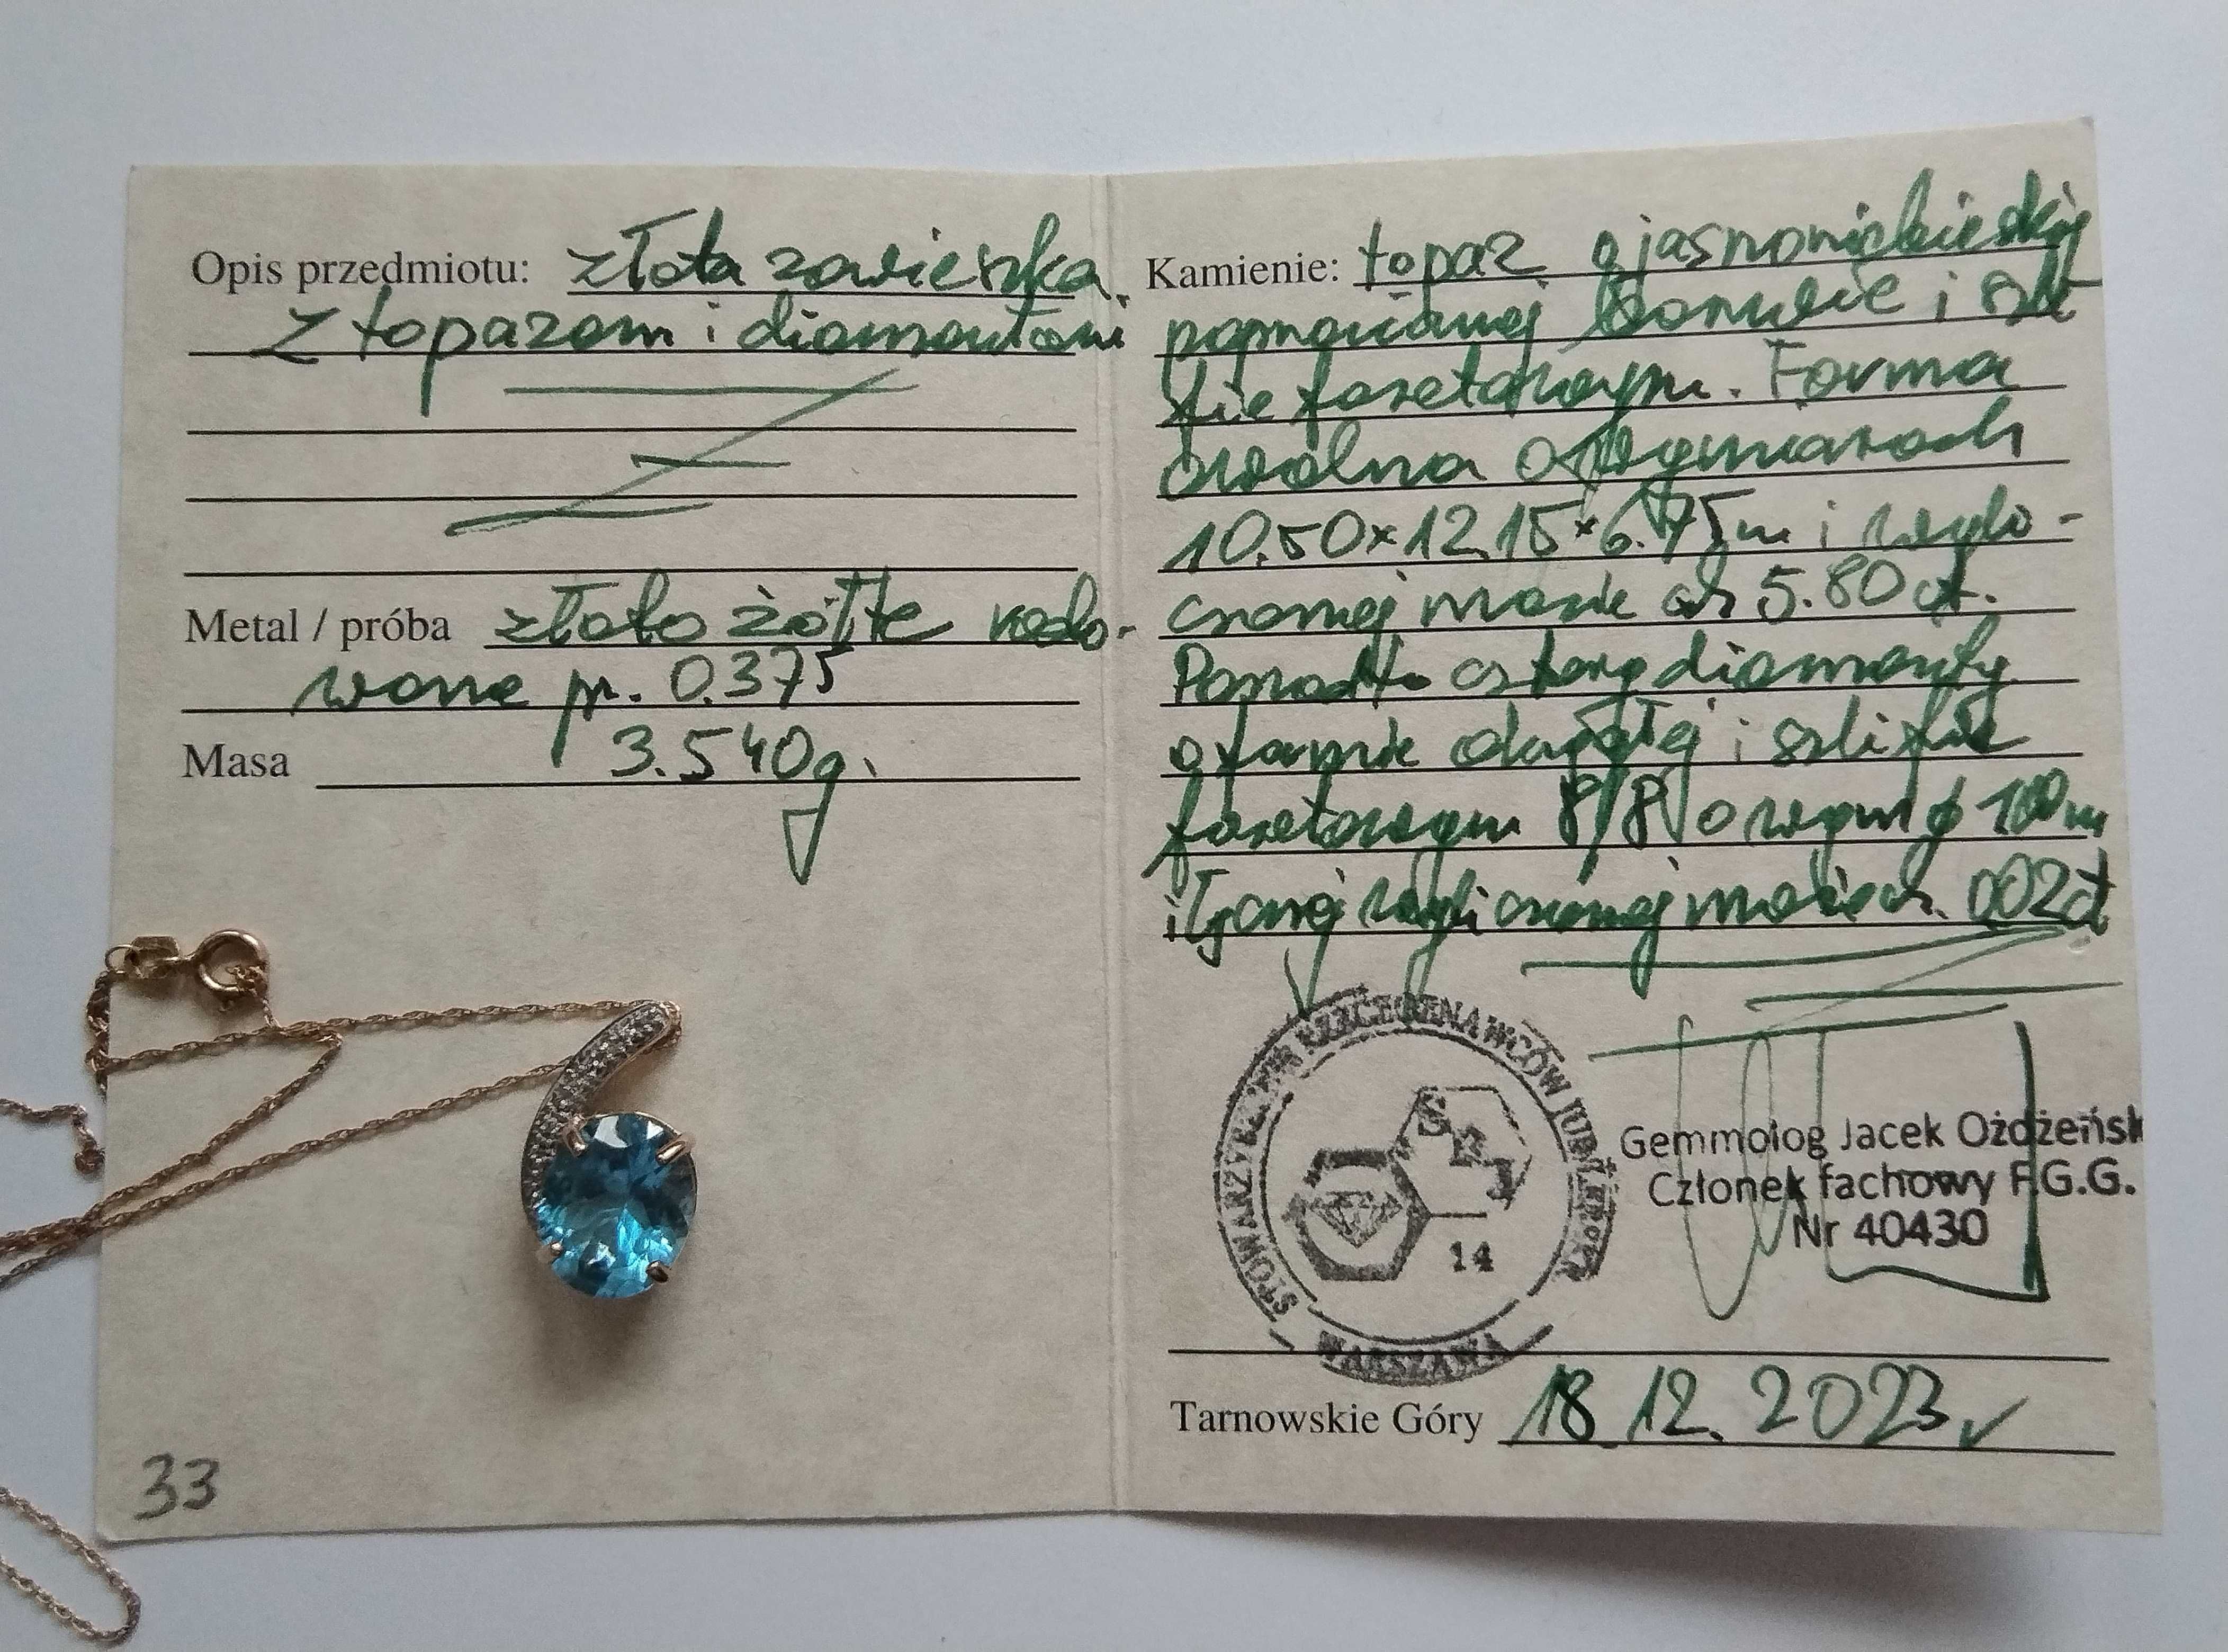 Opis przedmiotu: złota zawieszka
z topazem i diamentami
Metal / próba złoto żółte rodo-
wane pr. 0.375
Masa 3.540g.
33
Kamienie: topaz o jasnoniebieskiej
poprawianej barwie i szli-
fie fasetowym. Forma
owalna o wymiarach
10.50x12.15x6.75m i wyli-
czonej masie ok 5.80 ct.
Ponadto cztery diamenty
o formie okrągłej i szlifie
fasetowym 8/8 o wym ϕ 1.00m
i łącznej wyliczonej masie ok. 0.02ct
STOWARZYSZENIE RZECZOZNAWCÓW JUBILERSKICH
SRJ
14
WARSZAWA
Gemmolog Jacek Ożdżeńsk
Członek fachowy F.G.G.
Nr 40430
Tarnowskie Góry 18.12.2023